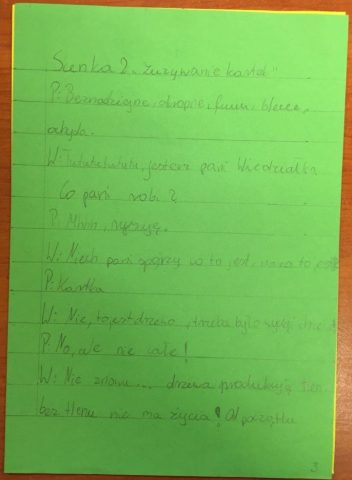 Scenka 2 „Zużywanie kartek"
P: Beznadziejne, okropne, fuuu, bleee,
ohyda.
W: Tututututu, jestem pani Wiedzialska
Co pani robi?
P: Mmm, rysuję.
W: Niech pani spojrzy co to jest, no co to jest
P: Kartka
W: Nie, to jest drzewo, trzeba było wyciąć
P: No, ale nie całe!
W: Nie znowu... drzewa produkują tlen
bez tlenu nie ma życia! Od początku
3